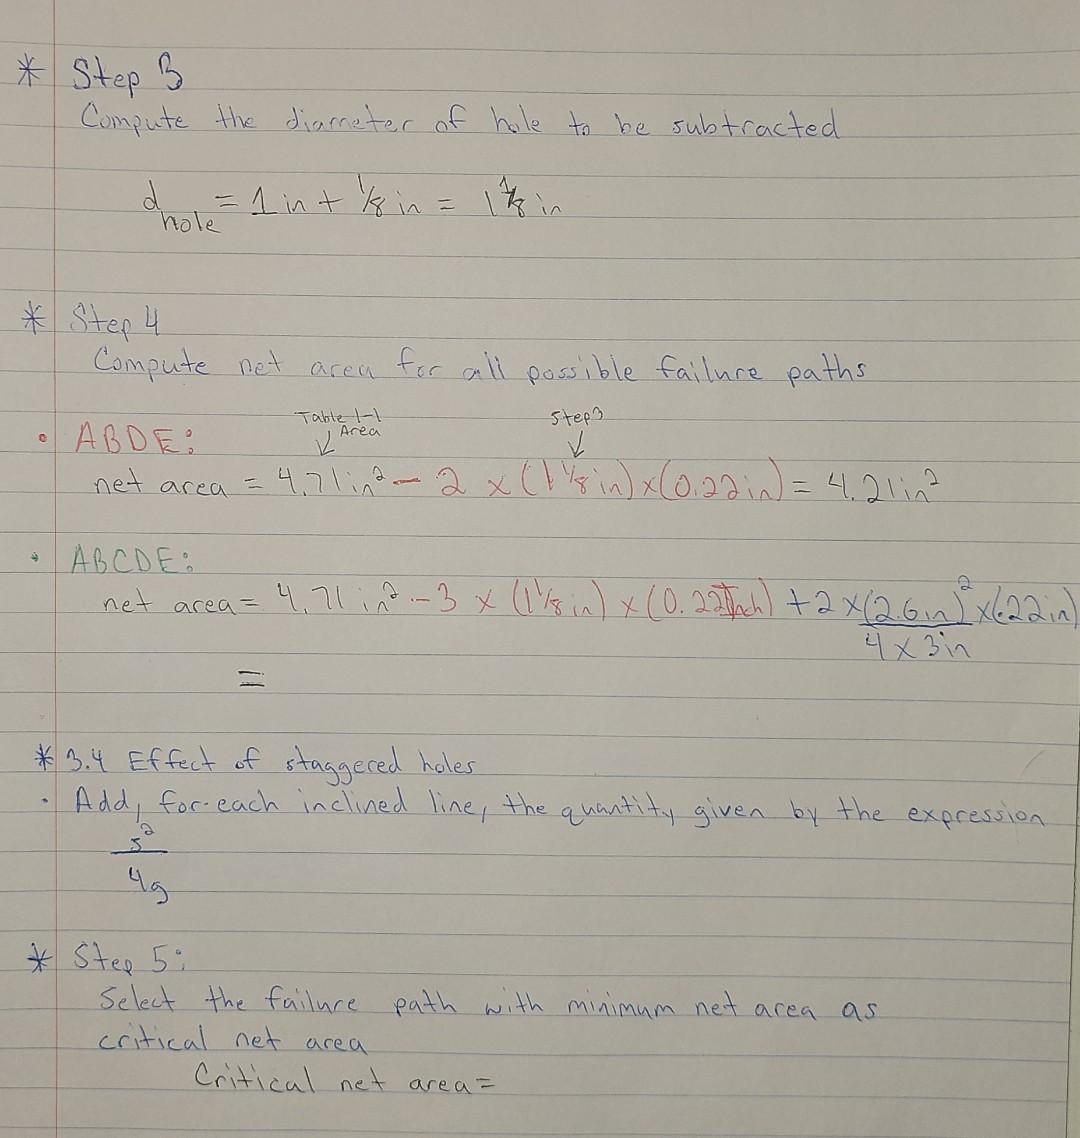 * Step 3
Compute the diameter of hole to be subtracted
d hole = 1 in + 1/8 in = 1 1/8 in
* Step 4
Compute net area for all possible failure paths
Table 1-1 Area
Step 3
• ABDE:
net area = 4.71 in² - 2 × (1 1/8 in) × (0.22 in) = 4.21 in²
• ABCDE:
net area = 4.71 in² - 3 × (1 1/8 in) × (0.22 inch) + 2 × (2.6 in)² × (.22 in)
4 × 3 in
=
* 3.4 Effect of staggered holes
• Add, for each inclined line, the quantity given by the expression
s²
4g
* Step 5:
Select the failure path with minimum net area as
critical net area
Critical net area =